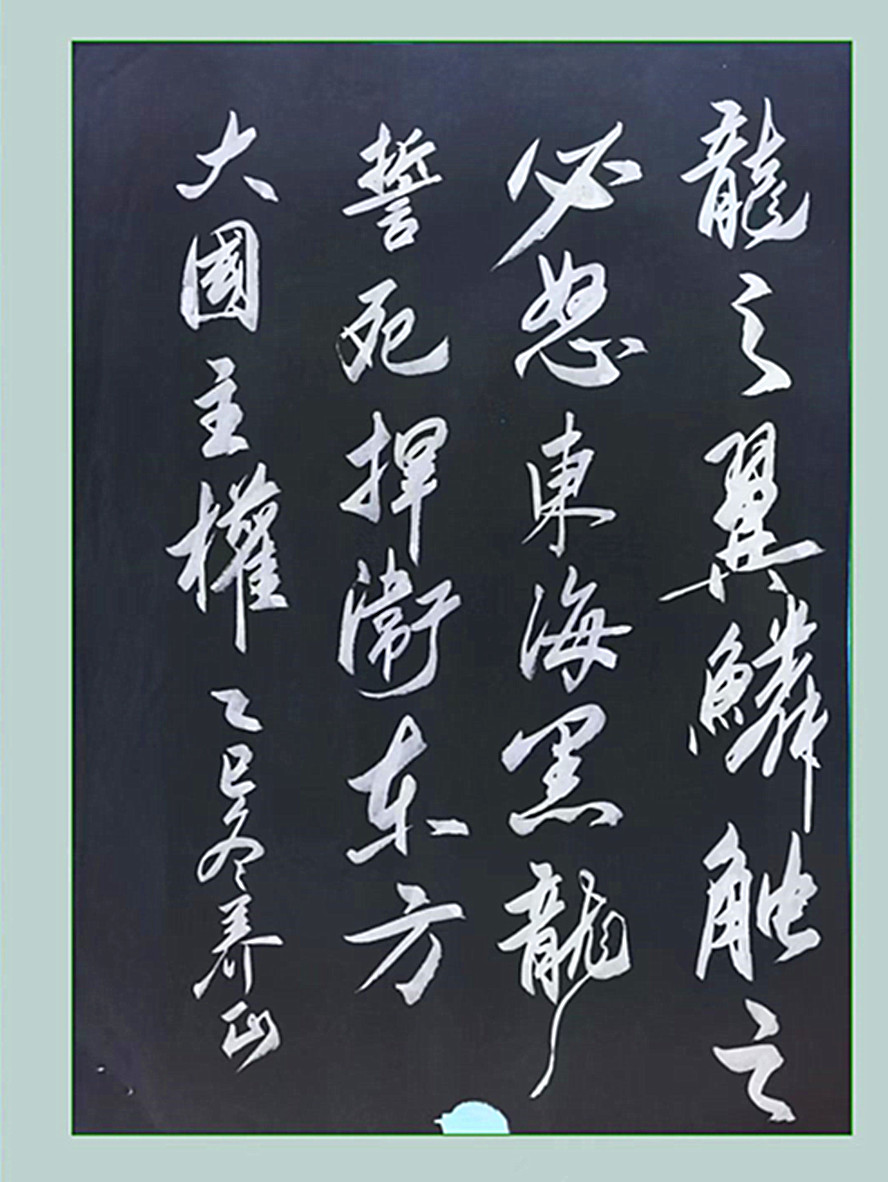 龍之翼鱗触之
必怒東海黑龍
誓死捍衛东方
大國主權 乙巳冬养正